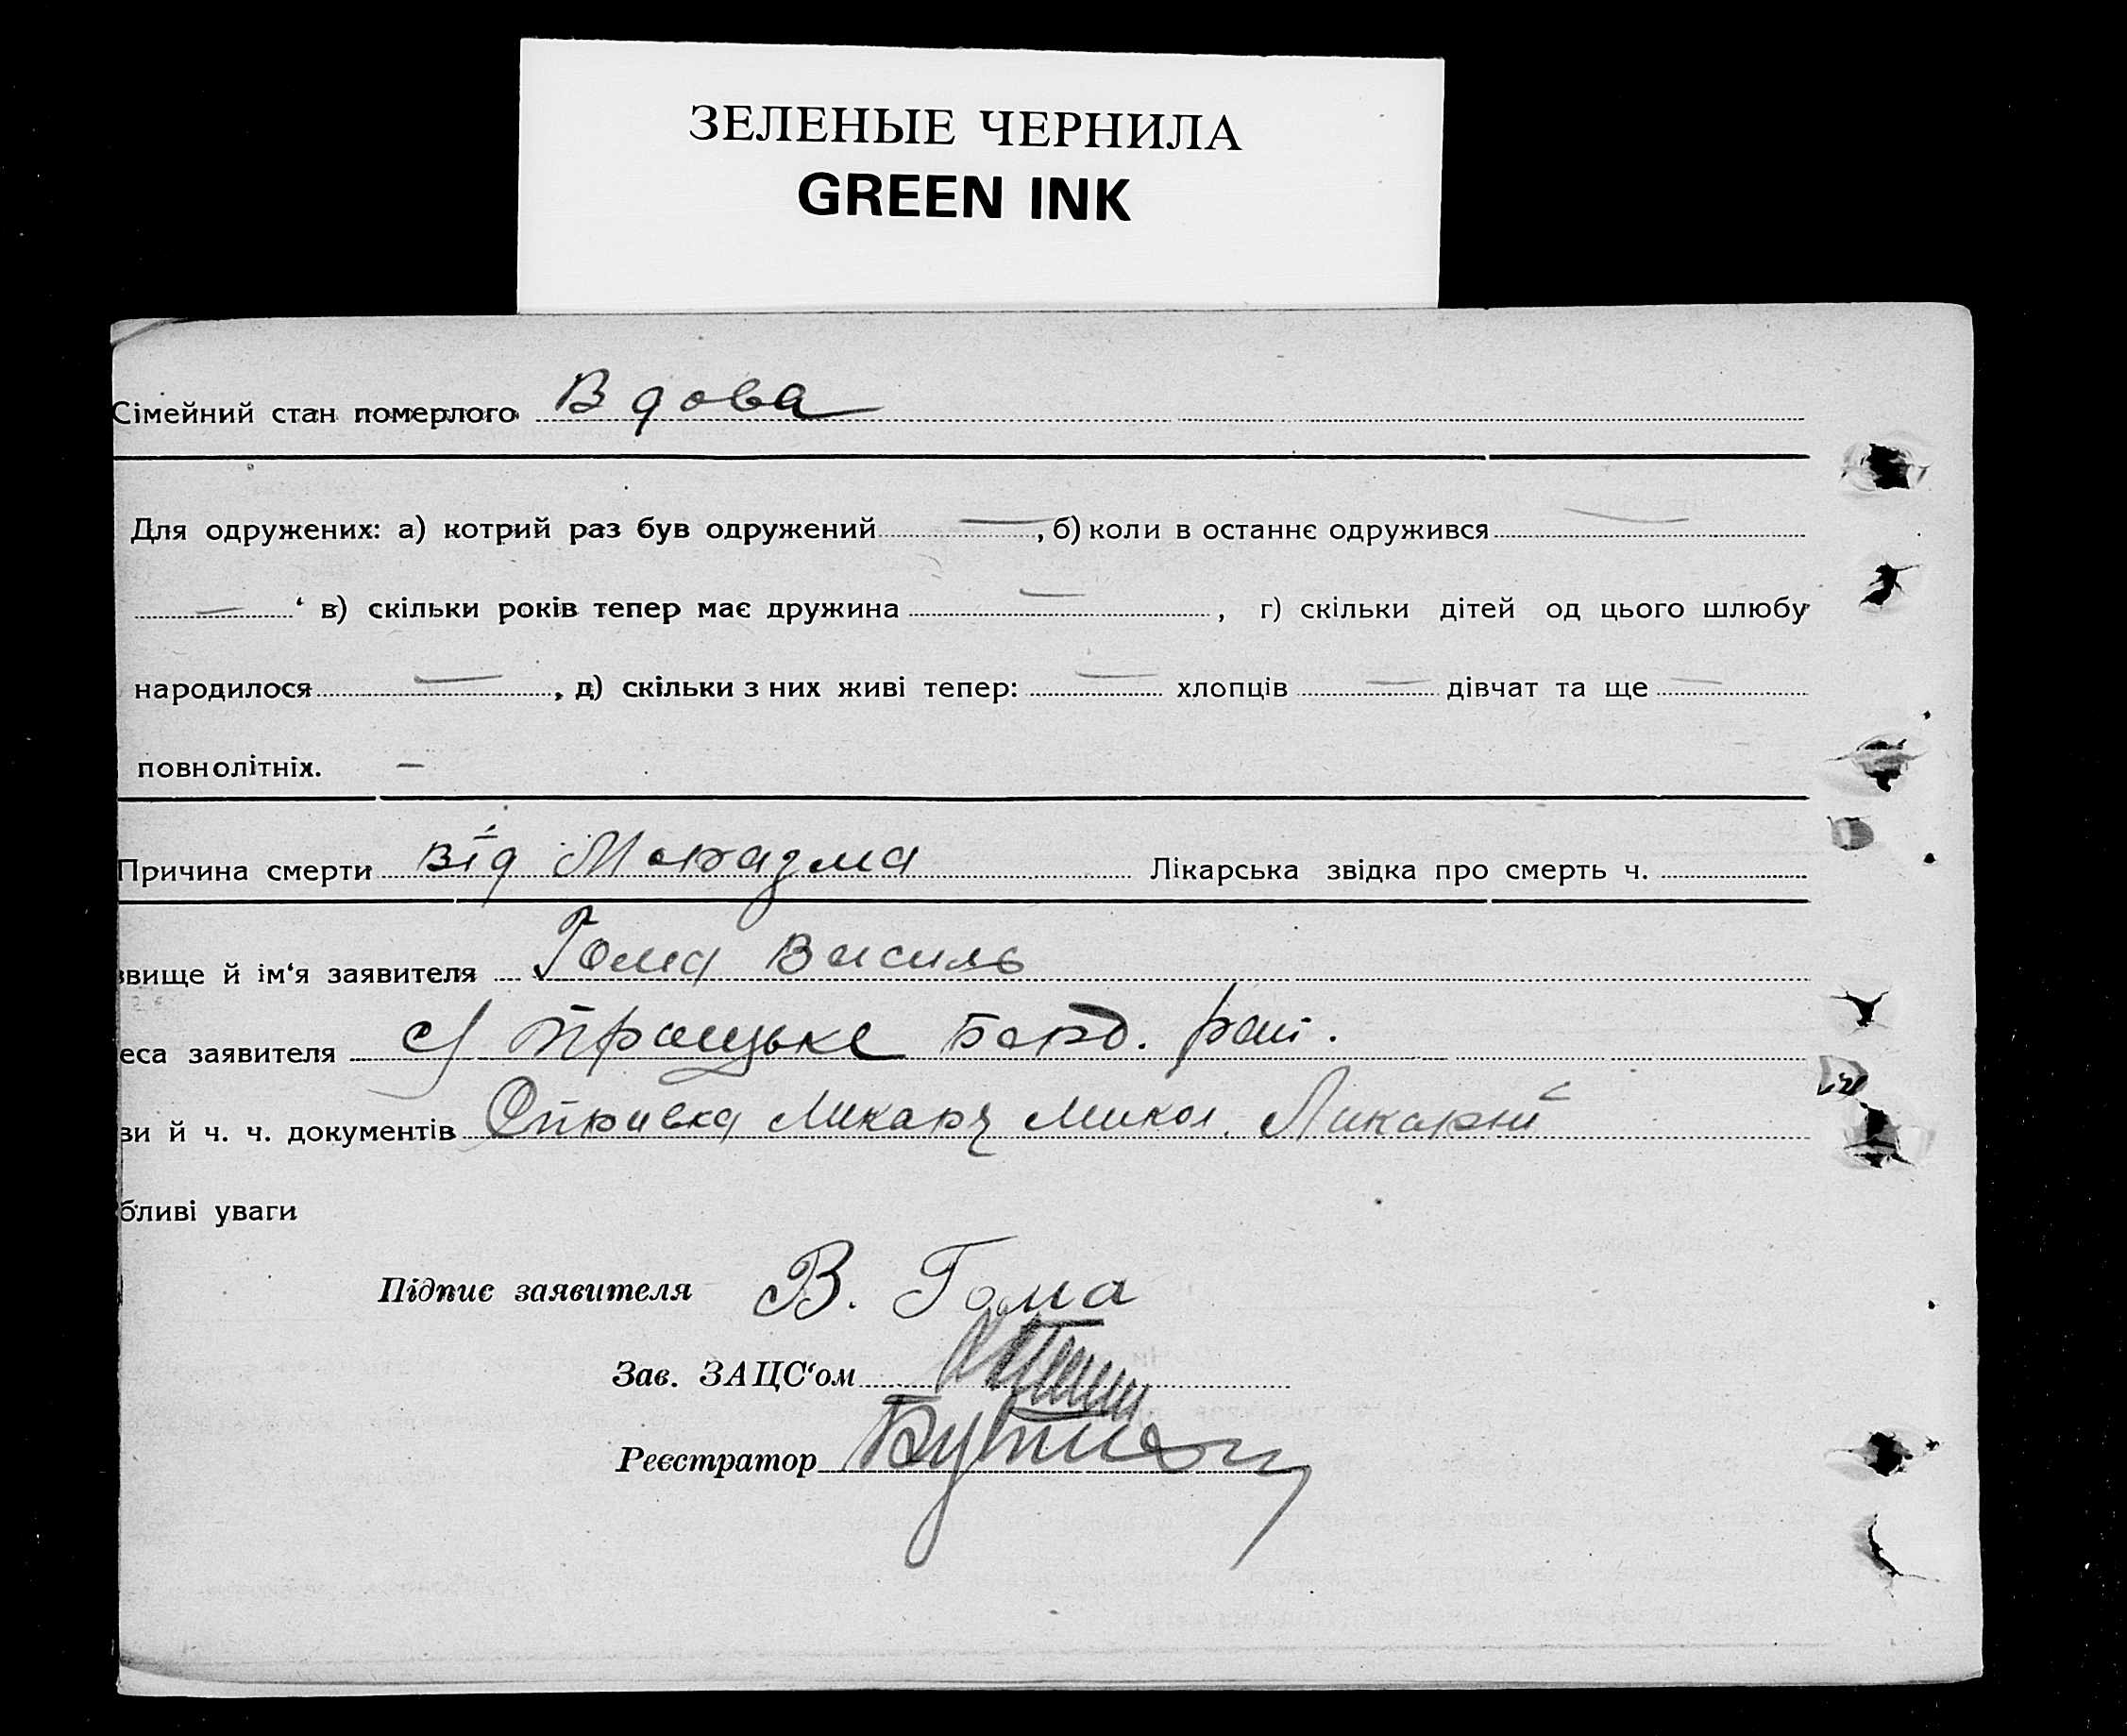 ЗЕЛЕНЫЕ ЧЕРНИЛА
GREEN INK
Сімейний стан померлого Вдова
Для одружених: а) котрий раз був одружений —, б) коли в останнє одружився —
— ‘ в) скільки років тепер має дружина —, г) скільки дітей од цього шлюбу
народилося —, д) скільки з них живі тепер: — хлопців — дівчат та ще —
повнолітніх. —
Причина смерти від Маразма Лікарська звідка про смерть ч.
звище й ім‘я заявителя Гома Василь
еса заявителя с Троицьке
ви й ч. ч. документів Микол.
бливі уваги
Підпис заявителя В. Гома
Зав. ЗАЦС‘ом
Реєстратор